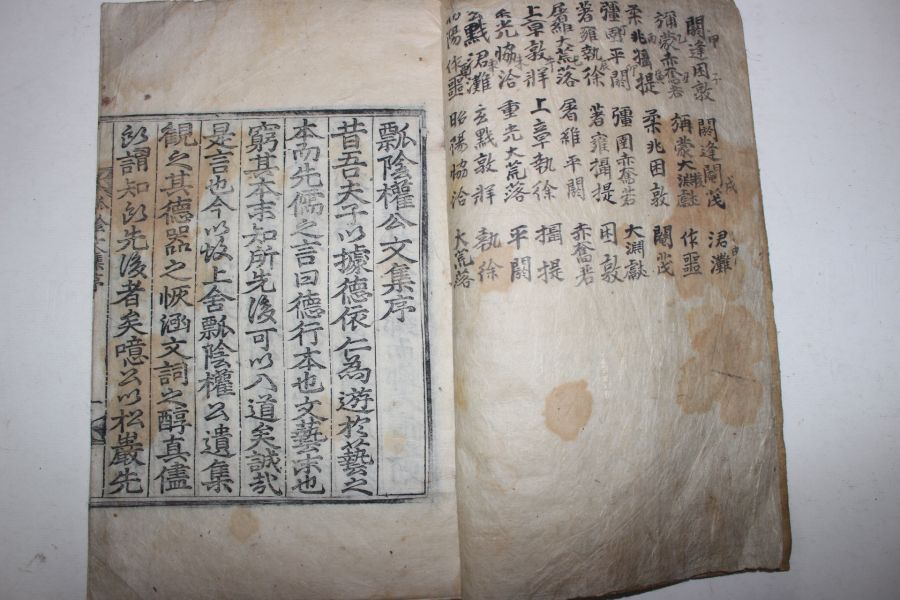 閼逢困敦 閼逢閹茂 涒灘
彌蒙赤奮若 彌蒙大淵獻 作噩
柔兆攝提 柔兆困敦 閹茂
彊圉平閼 彊圉赤奮若 大淵獻
著雍執徐 著雍攝提 困敦
屠維大荒落 屠維平閼 赤奮若
上章敦牂 上章執徐 攝提
重光協洽 重光大荒落 平閼
玄黓涒灘 玄黓敦牂 執徐
昭陽作噩 昭陽協洽 大荒落
瓢陰權公文集序
昔吾夫子以據德依仁為遊於藝之
本而先儒之言曰德行本也文藝末也
窮其本末知所先後可以入道矣誠哉
是言也今以故上舍瓢陰權公遺集
觀之其德器之恢涵文詞之醇真儘
所謂知所先後者矣噫公以松巖先